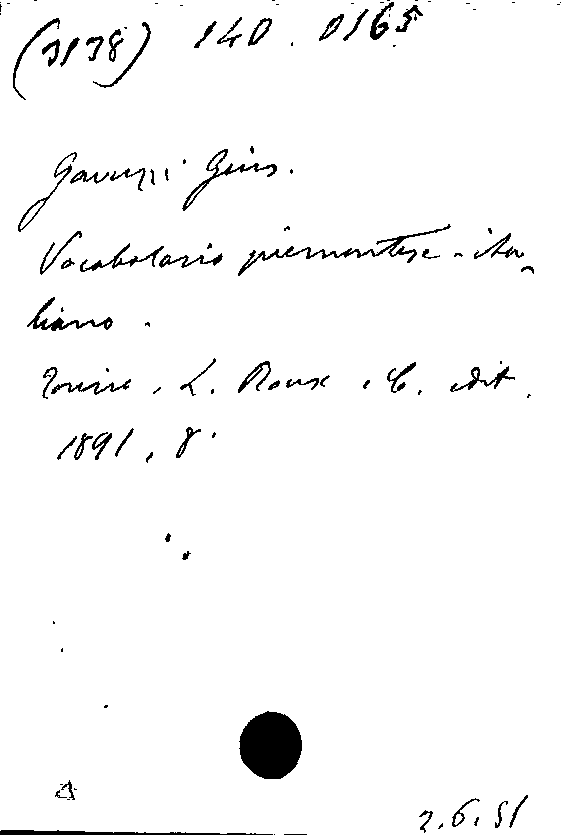 (3138) 140. 0165
Gavuzzi Gius.
Vocabolario piemontese-ita-
liano.
Torino, L. Roux e C. edit.
1891, 8.
2.6.51